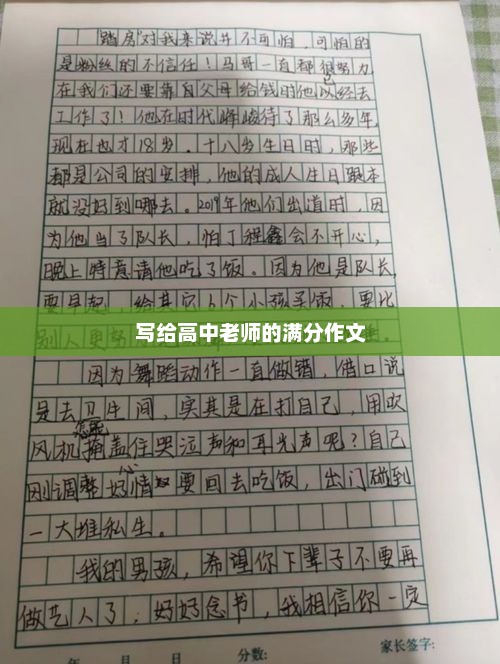 “踏房”对我来说并不可怕，可怕的
是粉丝的不信任！马哥一直都很努力
在我们还要靠父母给钱时他已经去
工作了！他在时代峰峻待了那么多年，
现在也才18岁。十八岁生日时，那些
都是公司的安排，他的成人生日跟本
就没好到哪去。2019年他们出道时，因
为他当了队长，怕丁程鑫会不开心，
晚上特意请他吃了饭。因为他是队长，
要早起，给其它6个小孩弄饭，要比
别人更努
写给高中老师的满分作文
因为舞蹈动作一直做错，借口说
是去卫生间，实其是在打自己，用吹
风机怎能掩盖住哭泣声和耳光声呢？自己
刚调整好心情要回去吃饭，出门碰到
一大堆私生。
我的男孩，希望你下辈子不要再
做艺人了，好好念书，我相信你一定
年 月 日 分数： 家长签字：